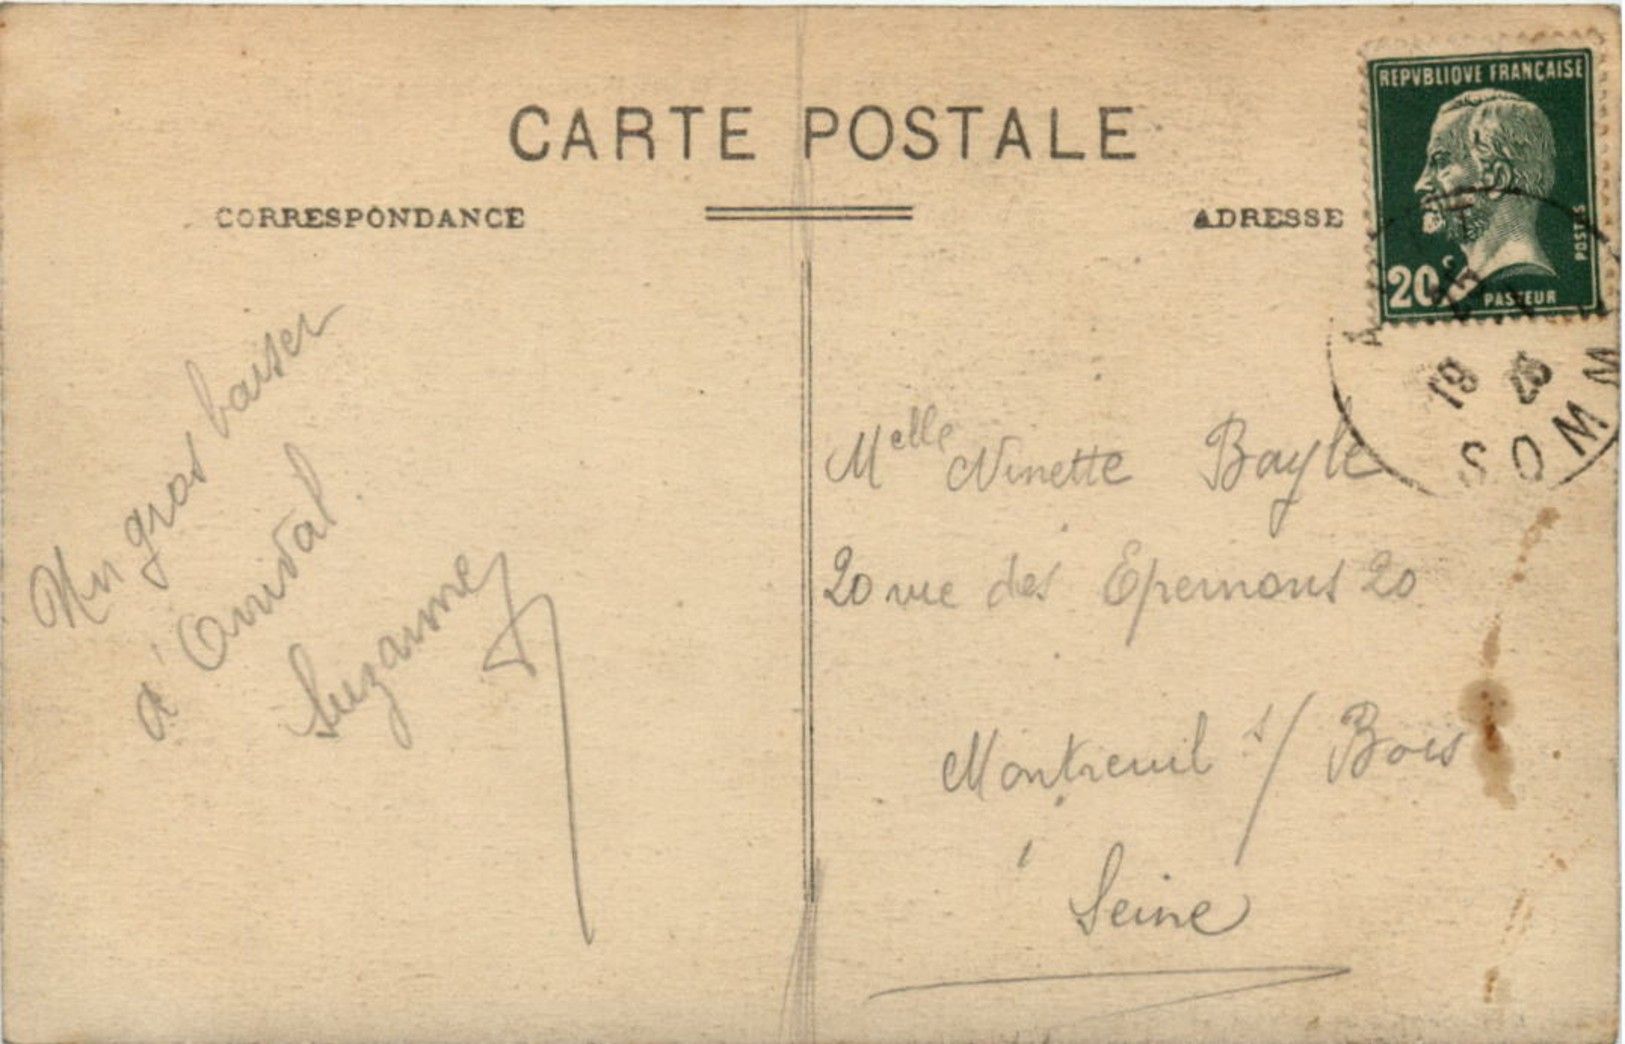 CARTE POSTALE
CORRESPONDANCE
ADRESSE
REPVBLIQVE FRANÇAISE
POSTES
20c
PASTEUR
SOMME
Un gros baiser
d'
Suzanne
Melle Ninette Bayle
20 rue des Epernons 20
Montreuil s/ Bois
Seine